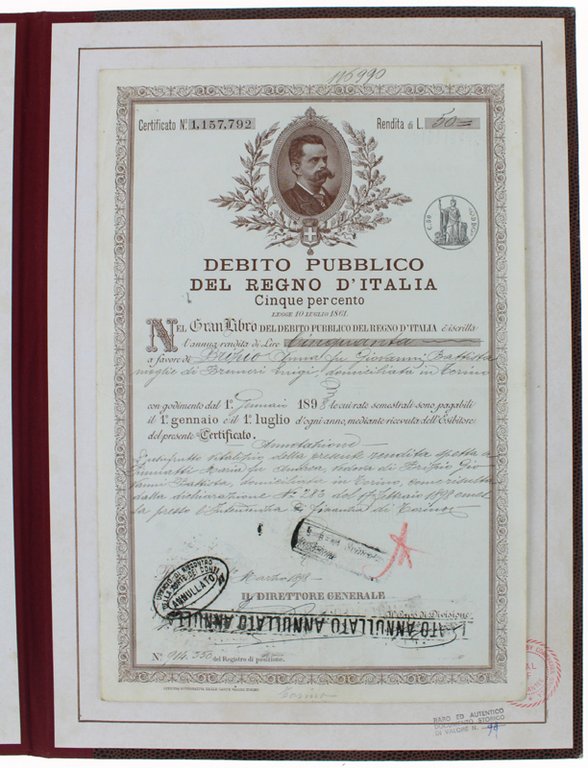 115990
Certificato N.º 1,157,792
Rendita di L. 50
DEBITO PUBBLICO
DEL REGNO D'ITALIA
Cinque per cento
LEGGE 10 LUGLIO 1861.
NEL Gran Libro DEL DEBITO PUBBLICO DEL REGNO D'ITALIA è iscritta
l'annua rendita di Lire Cinquanta
a favore di Anna fu Giovanni Battista
moglie di Luigi, domiciliata in Torino
con godimento dal 1º Gennaio 1898 le cui rate semestrali sono pagabili
il 1º gennaio e il 1º luglio d'ogni anno, mediante ricevuta dell'Esibitore
del presente Certificato.
Annotazione
L'usufrutto vitalizio della presente rendita spetta a
Maria fu Andrea, vedova di Gio
vanni Battista, domiciliata in Torino, come risulta
dalla dichiarazione Nº 283 del 17 Febbraio 1898
sa presso l'Intendenza di Finanza di Torino
UFFICIO DI RISCONTRO
DELLA CORTE DEI CONTI
ANNULLATO
Marzo 1898
IL DIRETTORE GENERALE
Il Capo di Divisione
LATO ANNULLATO ANNULL
Nº 914.350 del Registro di posizione.
OFFICINA GOVERNATIVA DELLE CARTE VALORI TORINO
Torino
RARO ED AUTENTICO
DOCUMENTO STORICO
DI VALORE N. 98